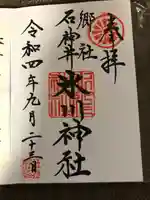 奉拝
郷社
石神井
氷川神社
令和四年九月二十三日